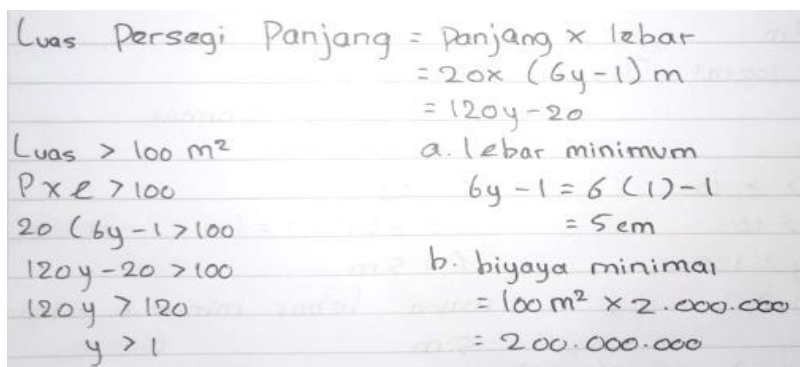 Luas Persegi Panjang = Panjang x lebar
= 20x (6y-1) m
= 120y-20
Luas > 100 m²
P x l > 100
20 (6y-1 > 100
120y-20 > 100
120y > 120
y > 1
a. lebar minimum
6y-1 = 6 (1)-1
= 5 cm
b. biyaya minimal
= 100 m² x 2.000.000
= 200.000.000